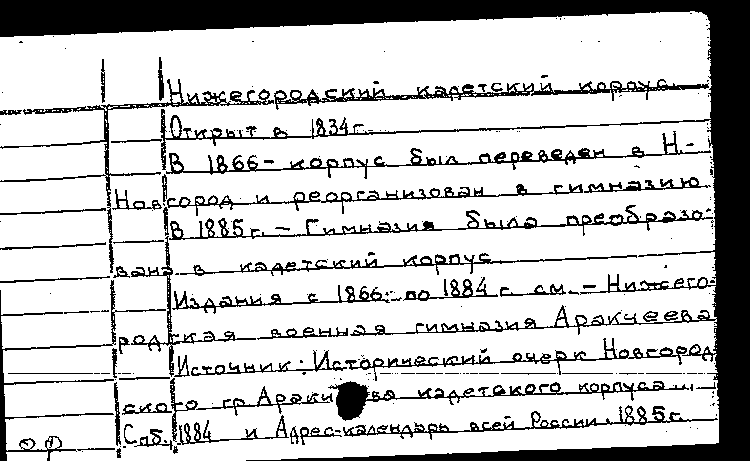 Нижегородский кадетский корпус.
Открыт в 1834 г.
В 1866 - корпус был переведен в Н.-
Новгород и реорганизован в гимназию
В 1885 г. - Гимназия была преобразо-
вана в кадетский корпус
Издания с 1866 - по 1884 г. см. - Нижего-
родская военная гимназия Аракчеева
Источник: Исторический очерк Новгород
ского гр. кадетского корпуса...
Спб., 1884 и Адрес-календарь всей России. 1885 г.